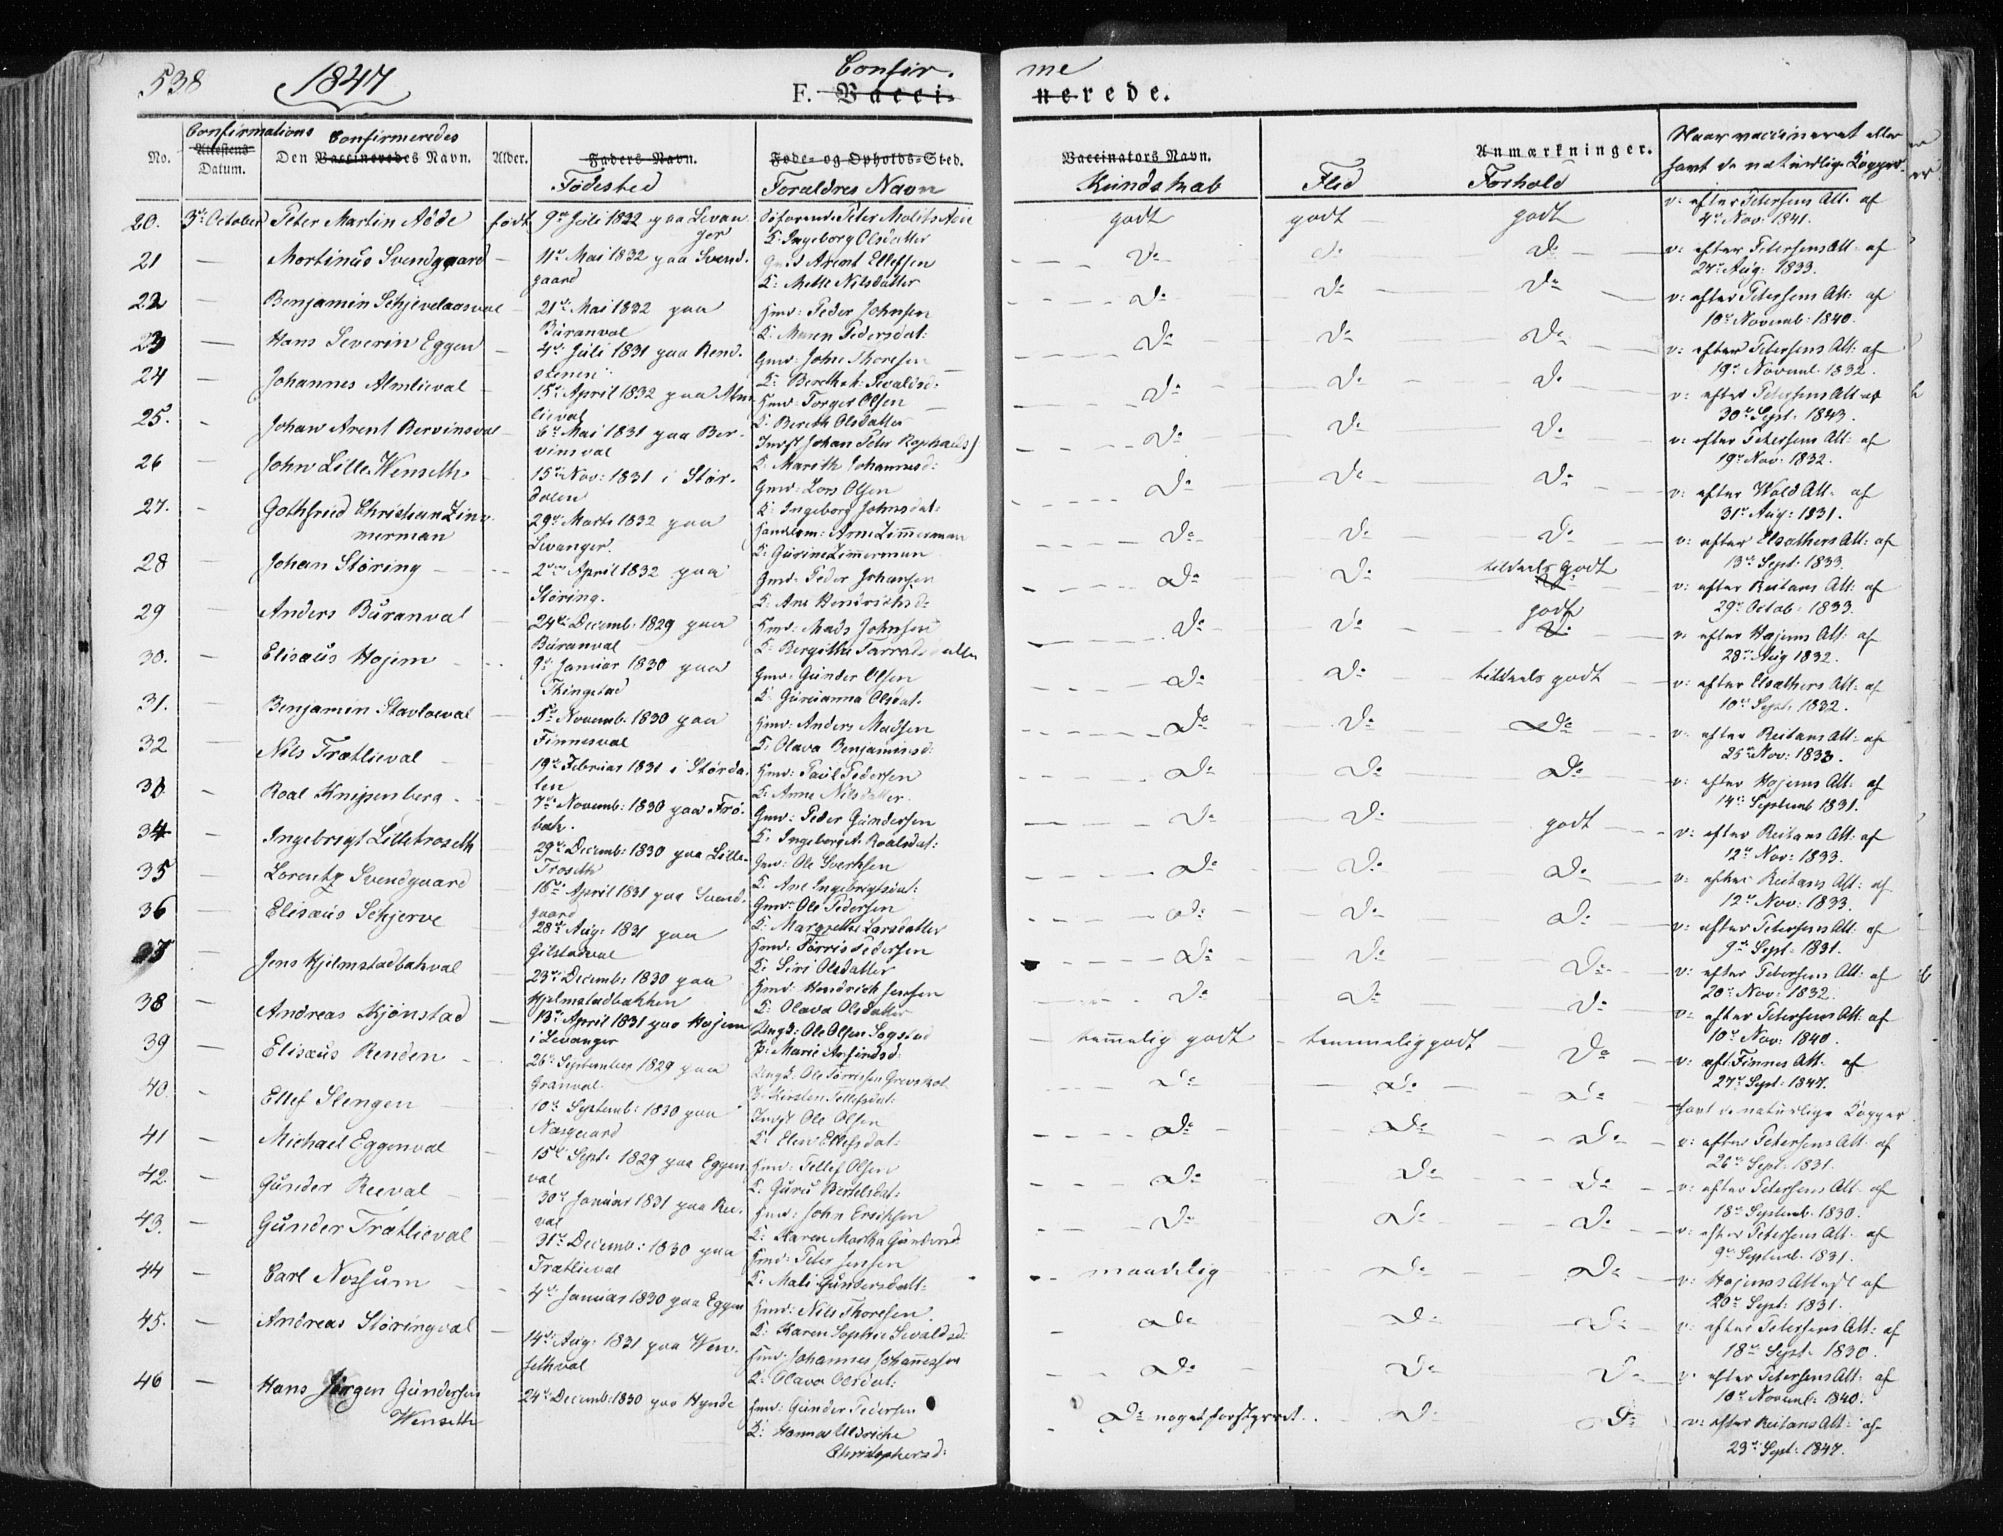 538 1847 F. Confir. me
Vacci- nerede.
No. Confirmations Attestens Datum. Den Confirmeredes Vaccineredes Navn. Alder. Faders Navn. Fødested Føde- og Opholds-Sted. Foreldres Navn Vaccinators Navn. Kundskab Flid Anmærkninger. Forhold Naar vaccineret eller havt de naturlige Kopper
20. 3die October Peter Martin Aöde født 9de Juli 1832 paa Levan- Peter godt godt godt v: efter Petersens Att: af
ger K: Ingeborg Olsdatter 4de Nov: 1841.
21 — Mortinus Svendgaard — 11te Mai 1832 paa Svend- Arent Ellefsen Do Do Do v: efter Petersens Att: af
gaard K: Mette Nilsdatter 24de Aug: 1833.
22 — Benjamin Schjevelaasval — 21de Mai 1832 paa Hmd: Peder Johnsen Do Do Do v: efter Petersens Att: af
Buranval K: Maren Pedersdat: 10de Novemb: 1840.
23 — Hans Severin Eggen — 4de Juli 1831 paa Rend- Gmd: John Thoresen Do Do Do v: efter Petersens Att: af
stenen K: Berethe M: Sivaldsd: 19de Novemb: 1832.
24 — Johannes Almlieval — 15de April 1832 paa Alm- Hmd: Torger Olsen Do Do Do v: efter Petersens Att: af
lieval K: Bereth Olsdatter 30te Sept: 1843.
25. — Johan Arent Bervinsval — 6te Mai 1831 paa Ber- Indst Johan Peter Do Do Do v: efter Petersens Att: af
vinsval K: Marith Johannesd: 19de Nov: 1832.
26 — John Lille Wenseth 15de Nov: 1831 i Stør- Gmd: Lars Olsen Do Do Do v: efter Wold Att: af
dalen K: Ingeborg Johnsdat: 31te Aug: 1831.
27. — Gothfried Christian Zim- 29de Marts 1832 paa Handlsm: Arne Zimmerman Do Do Do v: efter Elsathers Att: af
merman Levanger. K: Gurine Zimmerman 13de Sept: 1833.
28 — Johan Støring — 2den April 1832 paa Gmd: Peder Johansen Do Do tildeels godt Do v: efter Reitans Att: af
Støring. K: Ane Hendrichsd: 29de Octob: 1833.
29 — Anders Buranval — 24de Decemb: 1829 paa Hmd: Mads Johnsen Do Do godt Do v: efter Hojems Att: af
Buranval K: Bergithe 28de Aug 1832.
30. — Elisæus Hojem — 9de Januar 1830 paa Gmd: Gunder Olsen Do Do tildeels godt v: efter Elsathers Att: af
Thingstad K: Gurianna Olsdat: 10de Sept: 1832.
31. — Benjamin Stavloeval — 5te Novemb: 1830 paa Hmd: Anders Madsen Do Do Do v: efter Reitans Att: af
Finnesval K: Olava Benjaminsd: 25de Nov: 1833.
32 — Nils Trætlieval — 19de Februar 1831 i Størda- Hmd: Paul Pedersen Do Do Do v: efter Hojems Att: af
len K: Anne Nilsdatter. 14de Septemb 1831.
33 — Roal Knipenberg — 7de Novemb: 1830 paa Frö- Gmd: Peder Gundersen Do Do godt v: efter Reitans Att: af
bak. K: Ingeborg A: Roalsdat: 12te Nov: 1833.
34 — Ingebrigt Lilletroseth — 29de Decemb: 1830 paa Lille- Gmd: Ole Sverksen Do Do Do v: efter Reitans Att: af
Troseth K: Ane Ingebrigtsdat: 12te Nov: 1833.
35 — Lorentz Svendgaard — 18de April 1831 paa Svend- Gmd: Ole Pedersen Do Do Do v: efter Petersens Att: af
gaard K: Margrethe Larsdatter 9de Sept: 1831.
36 — Elisæus Schjerve — 28de Aug: 1831 paa Hmd: Torris Pedersen Do Do Do v: efter Petersens Att: af
Gilstadval K: Siri Olsdatter 20de Nov: 1832.
37 — Jens Hjelmstadbakval — 23de Decemb: 1830 paa Hmd: Hendrich Jensen Do Do Do v: efter Petersens Att: af
Hjelmstadbakken K: Olava Olsdatter 10de Nov: 1840.
38 — Andreas Kjønstad — 13de April 1831 paa Hojem Ungk: Ole Olsen temmelig godt temmelig godt Do v: eft: Finnes Att: af
i Levanger P: Marie Arfindsd: 27de Sept: 1847.
39 — Elisæus Renden — 26de September 1829 paa Ungk: Ole Torrissen Do Do Do havt de naturlige Kopper
Granval. P: Kirsten
40. — Ellef Stengen — 10de Septemb: 1830 paa Indst Ole Olsen Do Do Do v: efter Petersens Att: af
Næsgaard K: Elen Ellefsdat: 26de Sept: 1831.
41 — Michael Eggenval — 15de Sept: 1829 paa Eggen- Hmd: Tellef Olsen Do Do Do v: efter Petersens Att: af
val K: Guru Bertelsdat: 18de Septemb: 1830.
42. — Gunder Reeval — 30te Januar 1831 paa Ree- Hmd: John Ericksen Do Do Do v: efter Petersens Att: af
val K: Karen Martha Gundersd 9de Septemb: 1831.
43. — Gunder Trætlieval 31te Decemb: 1830 paa Hmd: Peter Jensen maadelig Do Do v: Hojems Attest af
Trætlieval K: Mali Gundersdatt: 20de Sept: 1831.
44 — Carl Nossum — 4de Januar 1830 paa Eggen Hmd: Nils Thoresen. Do Do Do v: efter Petersens Att: af
K: Karen Sophie Sivaldsd: 18de Sept: 1830.
45. — Andreas Støringval — 14de Aug: 1831 paa Wen- Hmd: Johannes Johannessen Do Do Do v: efter Petersens Att: af
sethval K: Olava Olsdat: 10de Novemb: 1840.
46 — Hans Jørgen Gundersen 24de Decemb: 1830 paa Hynde Hmd: Gunder Pedersen Do noget forstyrret. Do Do v: efter Reitans Att: af
Wenseth K: Hanna Uldriche 23de Sept: 1847.
Christophersd: